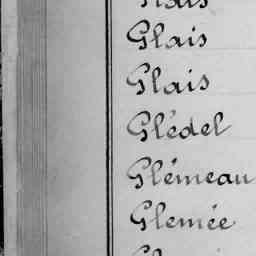 Glais
Glais
Glédel
Glémeau
Glemée